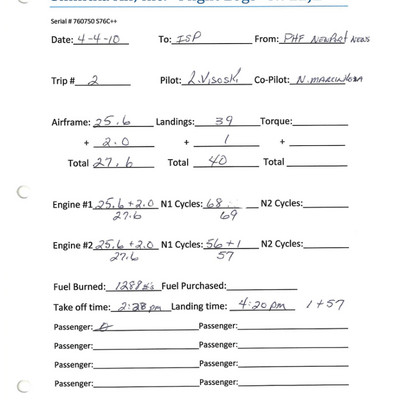 Serial # 760750 S76C++
Date: 4-4-10 To: ISP From: PHF Newport News
Trip # 2 Pilot: L. Visoski Co-Pilot: N.
Airframe: 25.6 Landings: 39 Torque:
+ 2.0 + 1 +
Total 27.6 Total 40 Total
Engine #1 25.6 + 2.0 N1 Cycles: 68 N2 Cycles:
27.6 69
Engine #2 25.6 + 2.0 N1 Cycles: 56 + 1 N2 Cycles:
27.6 57
Fuel Burned: Fuel Purchased:
Take off time: pm Landing time: 4:20 pm 1 + 57
Passenger: Passenger:
Passenger: Passenger:
Passenger: Passenger:
Passenger: Passenger: